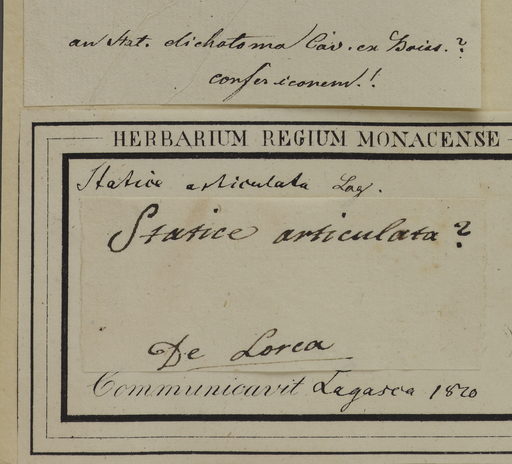 an Stat. dichotoma Cav. ex Boiss.?
confer iconem.!.
HERBARIUM REGIUM MONACENSE
Statice articulata Lag.
Statice articulata?
De Lorca
Communicavit Lagasca 1820